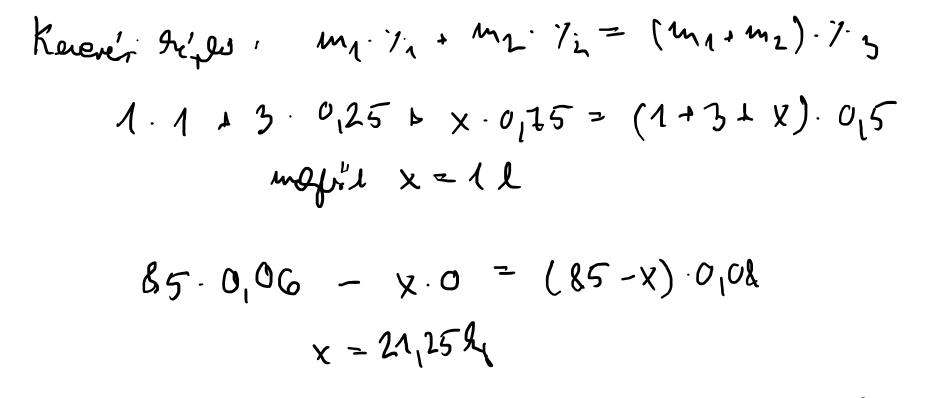 Keverési képlet: m₁·%₁ + m₂·%₂ = (m₁+m₂)·%₃
1·1 + 3·0,25 + x·0,75 = (1+3+x)·0,5
x = 1 l
85·0,06 - x·0 = (85-x)·0,08
x = 21,25 kg